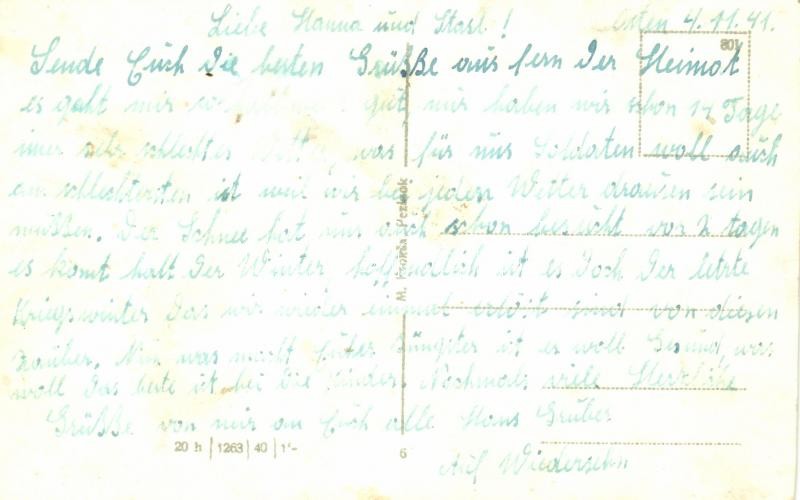 Liebe Hanna und Starl! Osten 4.11.41.
Sende Euch die besten Grüße aus fern der Heimat
es geht mir gut, nur haben wir schon 14 Tage
imer sehr schlechtes Wetter, was für uns Soldaten woll auch
am schlechtersten ist weil wir bei jeden Wetter drausen sein
müßen. Der Schnee hat uns auch schon besucht vor 2 tagen
es komt halt der Winter, hofendlich ist es doch der letzte
Kriegswinter das wir wieder einmal erlöst sind von diesen
Zauber. Nun was macht Euher Jüngster ist er woll Gesund, was
woll das beste ist bei die Kinder. Nochmals viele Herzliche
Grüße von mir an Euch alle Hans Gruber
Auf Wiedersehn
20 h | 1263 | 40 | 1'-
6
108
Pezinok